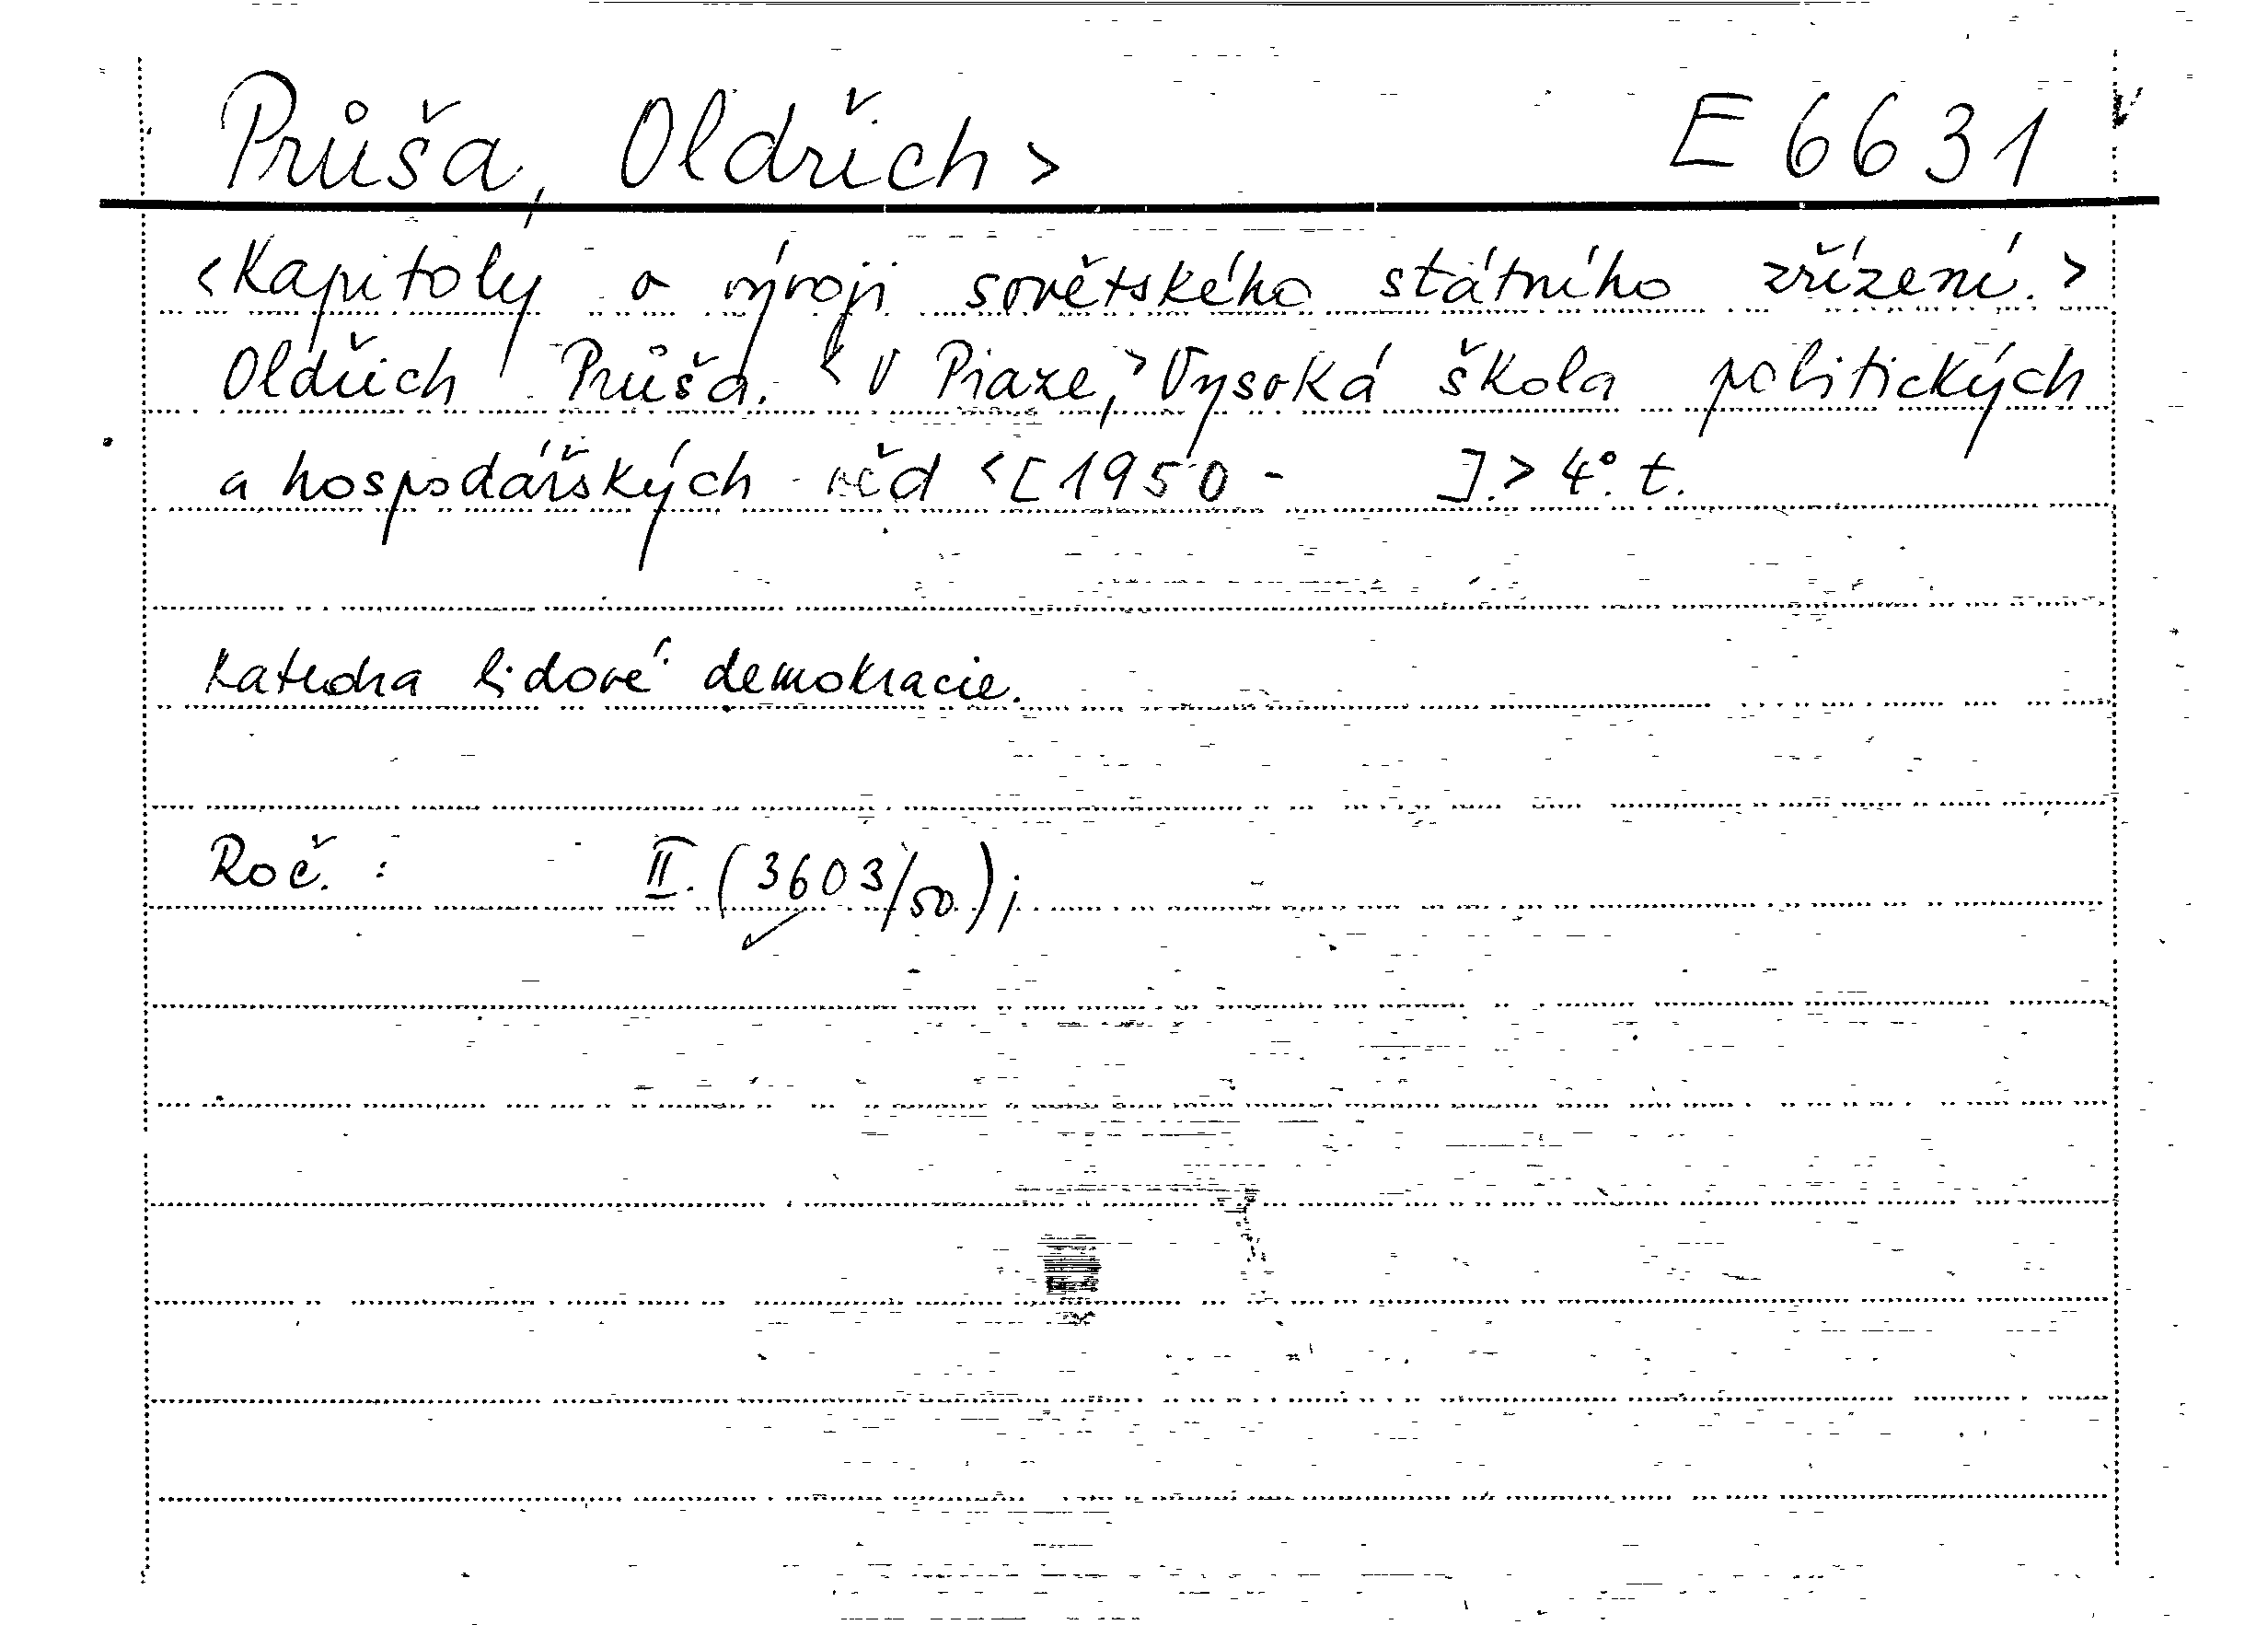 Průša, Oldřich > E 6631
<Kapitoly o vývoji sovětského státního zřízení.>
Oldřich Průša. <V Praze,> Vysoká škola politických
a hospodářských věd <[1950 - ].> 4°. t.
Katedra lidové demokracie.
Roč. : II. (3603/50);